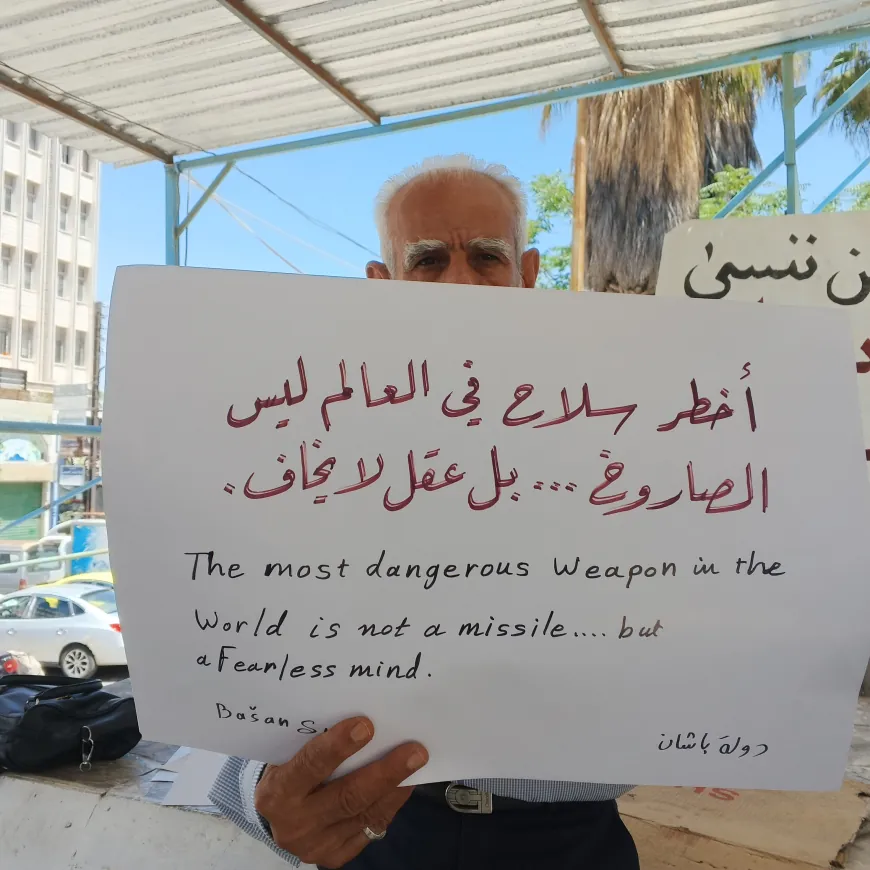 ن ننسى
أخطر سلاح في العالم ليس
الصاروخ ... بل عقل لا يخاف.
The most dangerous Weapon in the
World is not a missile.... but
a Fearless mind.
Bašan
دولة باشان